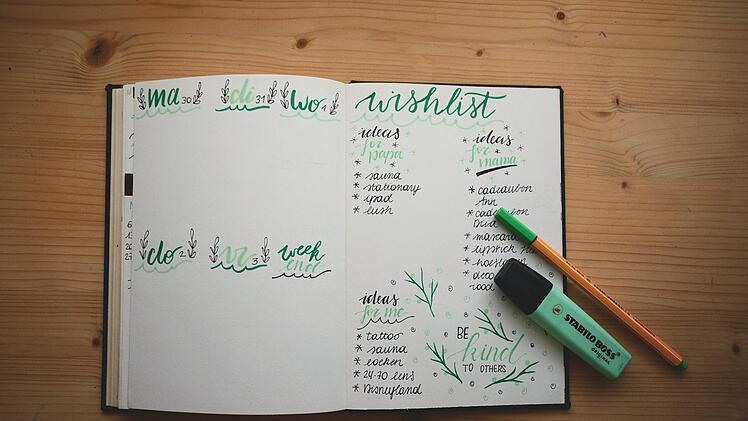 ma 30
di 31
wo 1
do 2
vr 3
week
end
wishlist
ideas
for
papa
* sauna
* stationary
* ipad
* lush
ideas
for
mama
* cadeaubon
Ann
* cadeaubon
* mascara
* lipstick
ideas
for me
* tattoo
* sauna
* boeken
* 24-70 lens
* Disneyland
BE
kind
TO OTHERS
STABILO BOSS
ORIGINAL